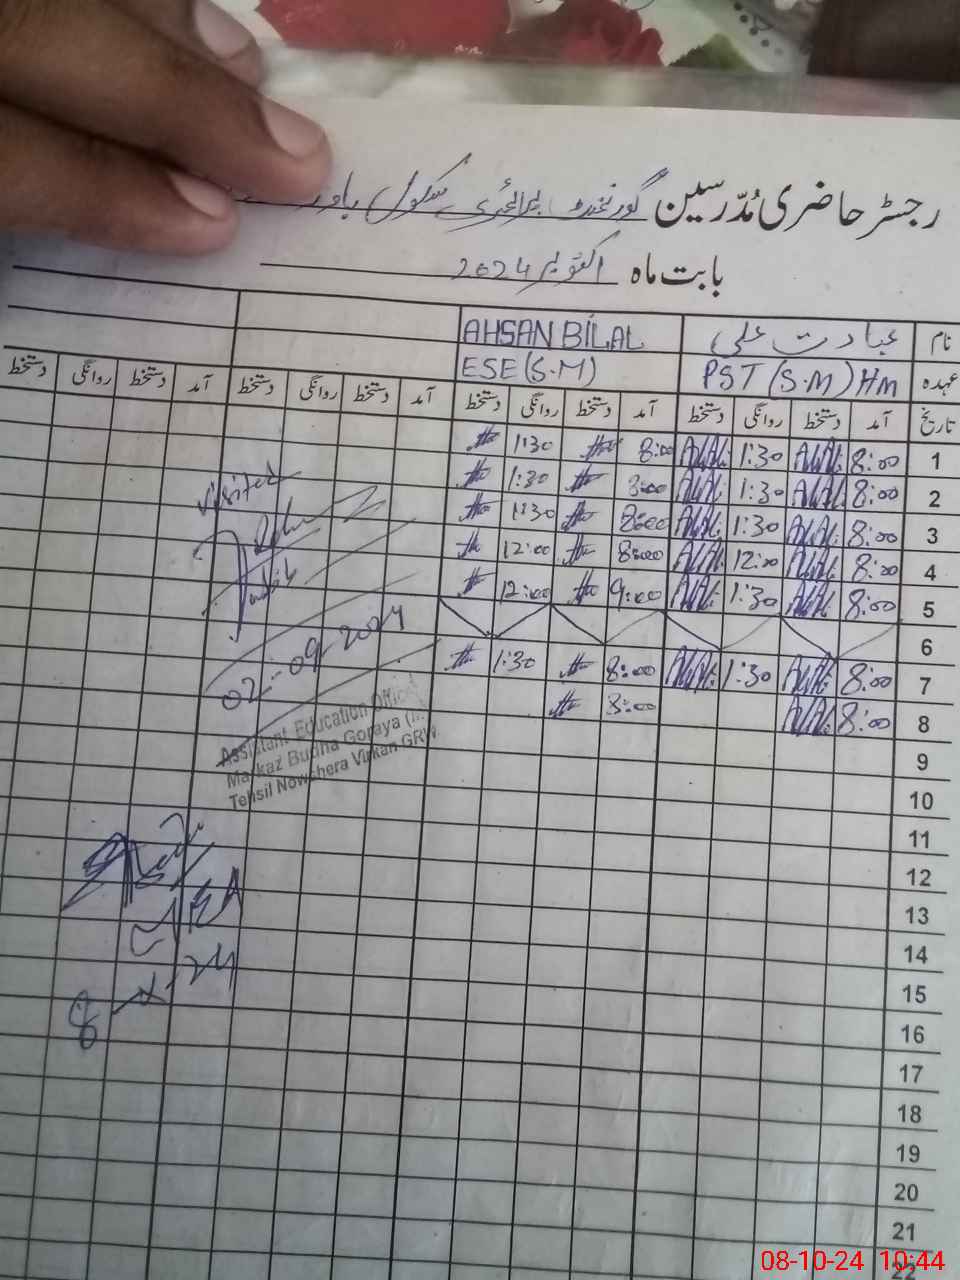 رجسٹر حاضری مُدّرسین گورنمنٹ پرائمری سکول
بابت ماہ اکتوبر 2024
نام عبادت علی AHSAN BILAL
عہدہ PST (S.M) Hm ESE (S.M)
تاریخ آمد دستخط روانگی دستخط آمد دستخط روانگی دستخط آمد دستخط روانگی دستخط آمد دستخط روانگی دستخط
1 8:00 1:30 8:00 1:30
2 8:00 1:30 8:00 1:30
3 8:00 1:30 8:00 1:30
4 8:00 12:00 8:00 12:00
5 8:00 1:30 9:00 12:00
6
7 8:00 1:30 8:00 1:30
8 8:00 8:00
9
10
11
12
13
14
15
16
17
18
19
20
21
22
visited
02-09-2024
Assistant Education Officer
Markaz Budha Goraya
Tehsil Nowshera Virkan GRW
08-10-24 10:44